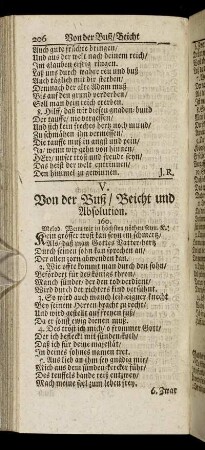 206 Von der Buß/ Beicht
Auch gute früchte bringen/
Und aus der welt nach deinem reich/
Im glauben eyfrig ringen.
Laß uns durch wahre reu und buß
Auch täglich mit dir sterben/
Demnach der alte Adam muß
Biß auf den grund verderben/
Soll man dein reich ererben.
8. Hilff, daß wir diesen gnaden-bund
Der tauffe/ nie vergessen/
Und sich kein freches hertz noch mund/
Zu schmähen ihn vermessen:
Die tauffe muß in angst und pein/
Ja/ wenn wir gehn von hinnen/
HErr/ unser trost und freude seyn/
Das heist der welt entrinnen/
Den himmel zu gewinnen. J. R.
V.
Von der Buß/ Beicht und
Absolution.
160.
Melod. Wenn wir in höchsten nöthen &c.
Kein grösser trost kan seyn im schmertz/
Als/ daß man Gottes Vatter-hertz
Durch seinen sohn kan sprechen an/
Der allen zorn abwenden kan.
2. Wie offt kommt man durch den sohn/
Befördert für des königs thron/
Manch sünder der den tod verdient/
Wird durch der richters kind versühnt.
3. So wird auch manch leibeigner knecht
Bey seinem Herren bracht zu recht/
Und wird gestellt auf freyen fuß/
Da er sonst ewig dienen muß.
4. Des tröst ich mich/ o frommer Gott/
Der ich befleckt mit sünden-koth/
Daß ich für deine majestät/
In deines sohnes namen tret.
5. Aus lieb an ihm sey gnädig mir/
Mich aus dem sünden-kercker führ/
Des teuffels bande reiß entzwey/
Mach meine seel zum leben frey.
6. Zwar